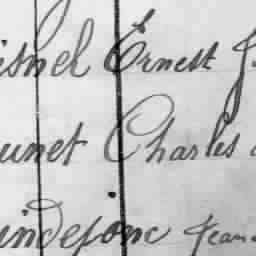 isnel Ernest J
unet Charles
indejonc Jean